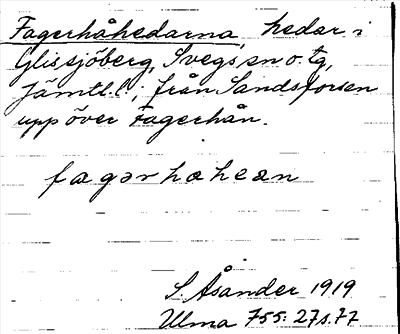 Fagerhåhedarna, hedar i
Glissjöberg, Svegs sn o. tg,
Jämtl. l.; från Sandsforsen
upp över Fagerhån.
fagərhəheɑn
S. Åsander 1919
Ulma 755: 27 s. 77